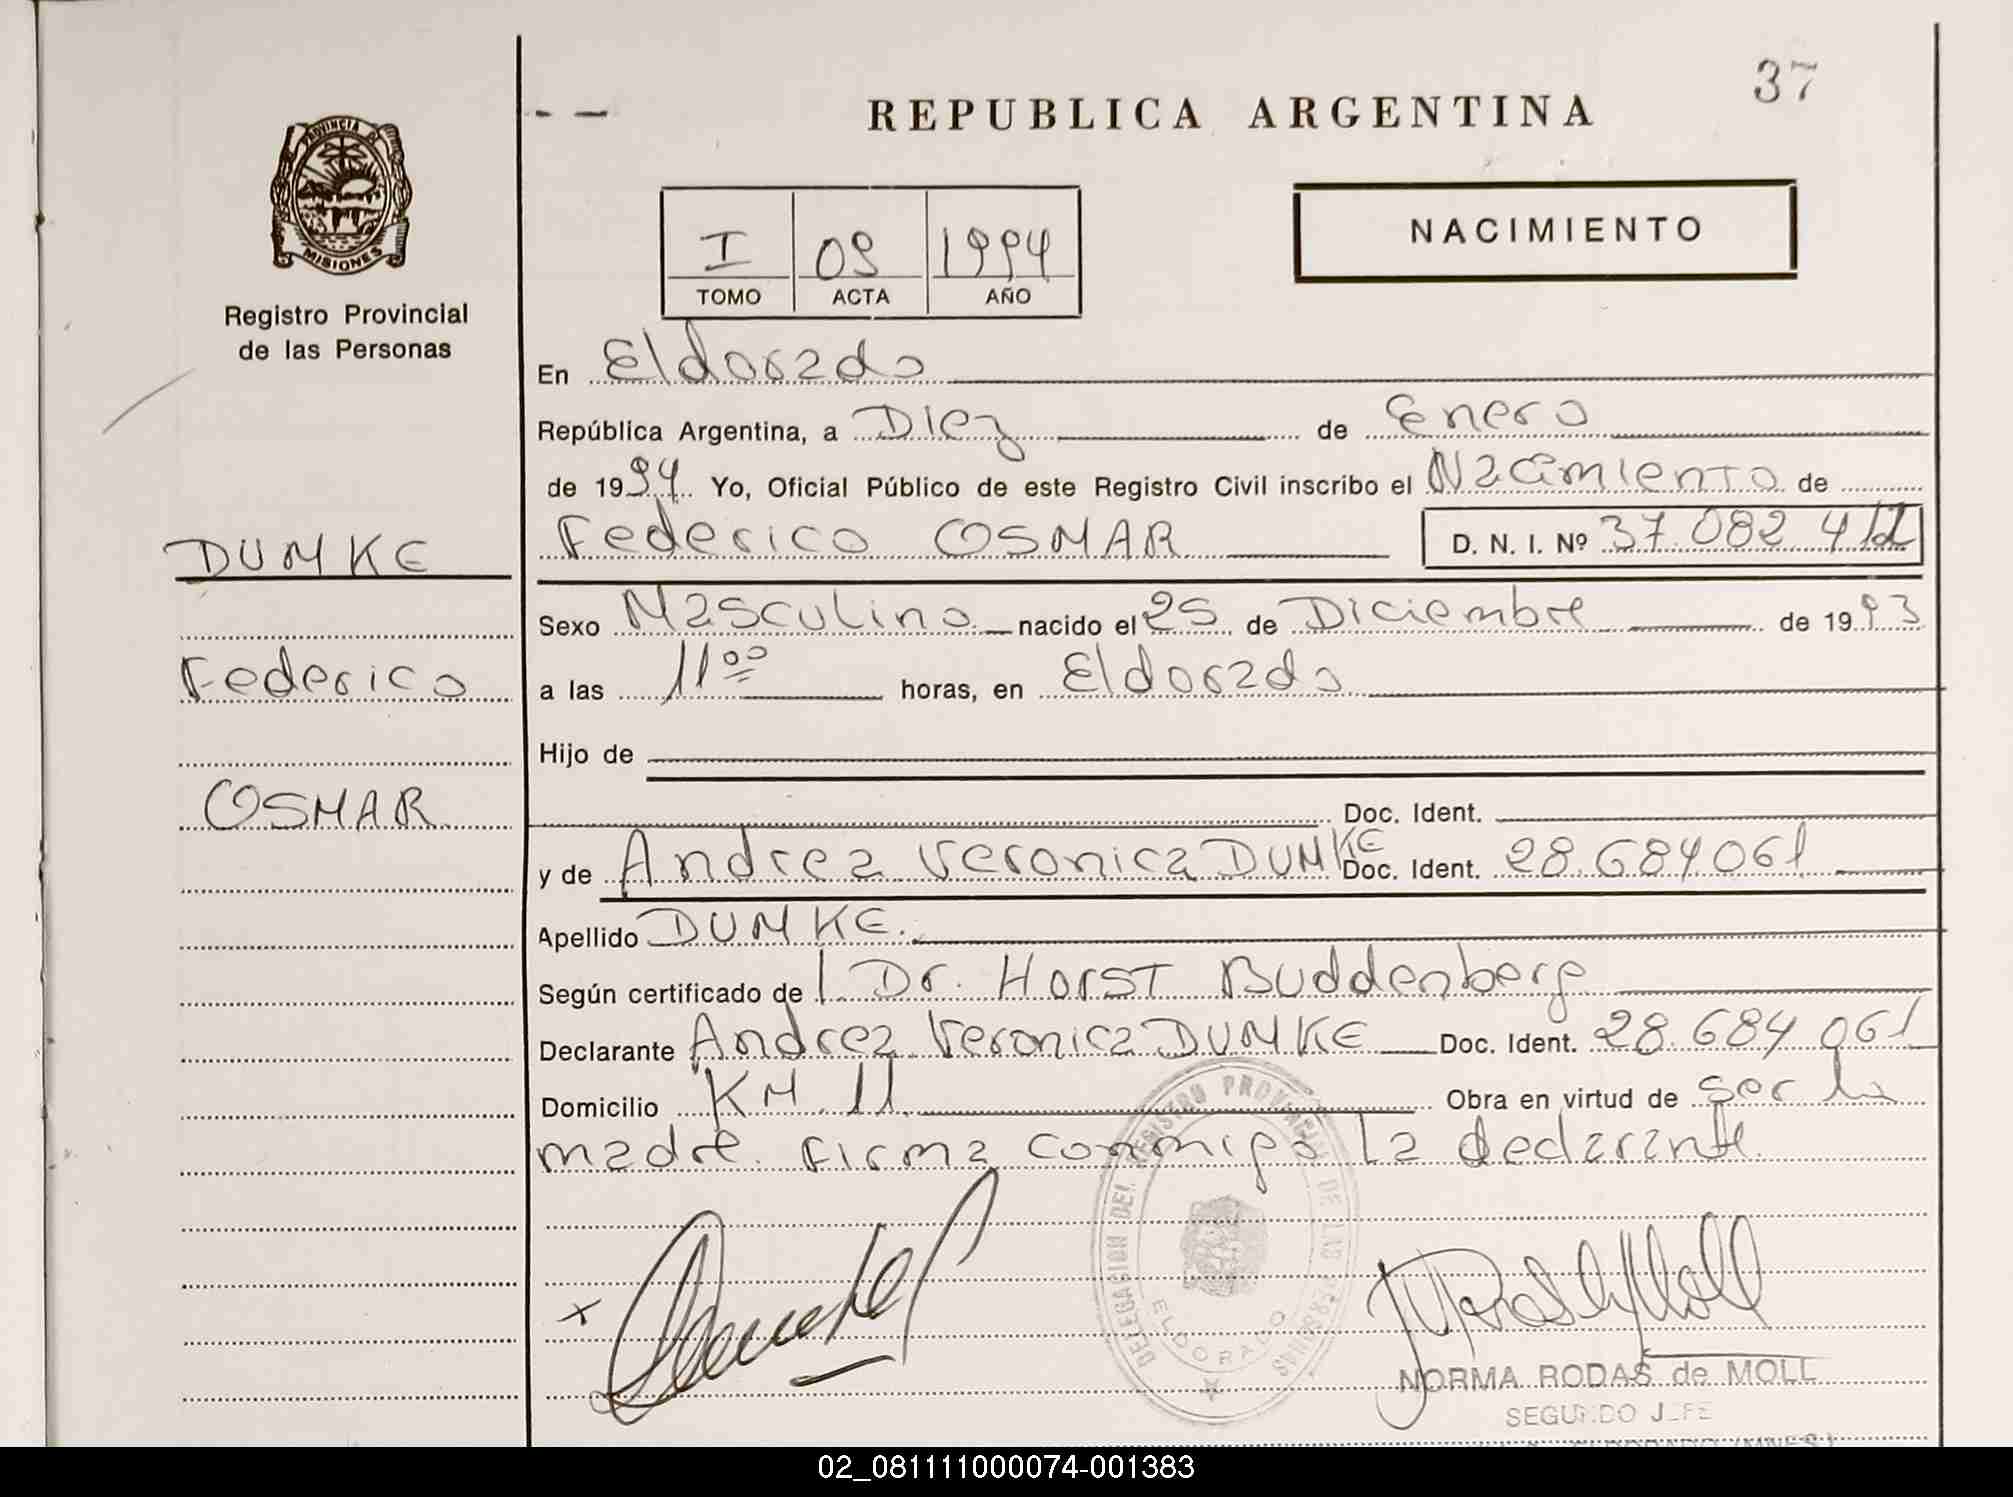 37
REPUBLICA ARGENTINA
PROVINCIA DE
MISIONES
Registro Provincial
de las Personas
NACIMIENTO
I 09 1994
TOMO ACTA AÑO
En Eldorado
República Argentina, a Diez de Enero
de 1994. Yo, Oficial Público de este Registro Civil inscribo el Nacimiento de
Federico OSMAR D. N. I. Nº 37.082.412
DUMKE
Federico
OSMAR
Sexo Masculino nacido el 25 de Diciembre de 1993
a las 11 00 horas, en Eldorado
Hijo de
Doc. Ident.
y de Andrea Veronica DUMKE Doc. Ident. 28.684.061
Apellido DUMKE.
Según certificado de Dr. Horst Buddenberg
Declarante Andrea Veronica DUMKE Doc. Ident. 28.684.061
Domicilio KM. 11 Obra en virtud de ser la
madre. Firma conmigo la declarante.
DELEGACION DEL REGISTRO PROVINCIAL DE LAS PERSONAS
ELDORADO
NORMA RODAS de MOLL
SEGUNDO JEFE
ELDORADO (MNES)
02_081111000074-001383